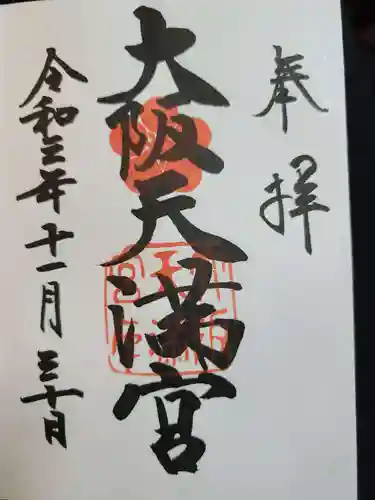 奉拝
大阪天満宮
令和三年十一月三十日